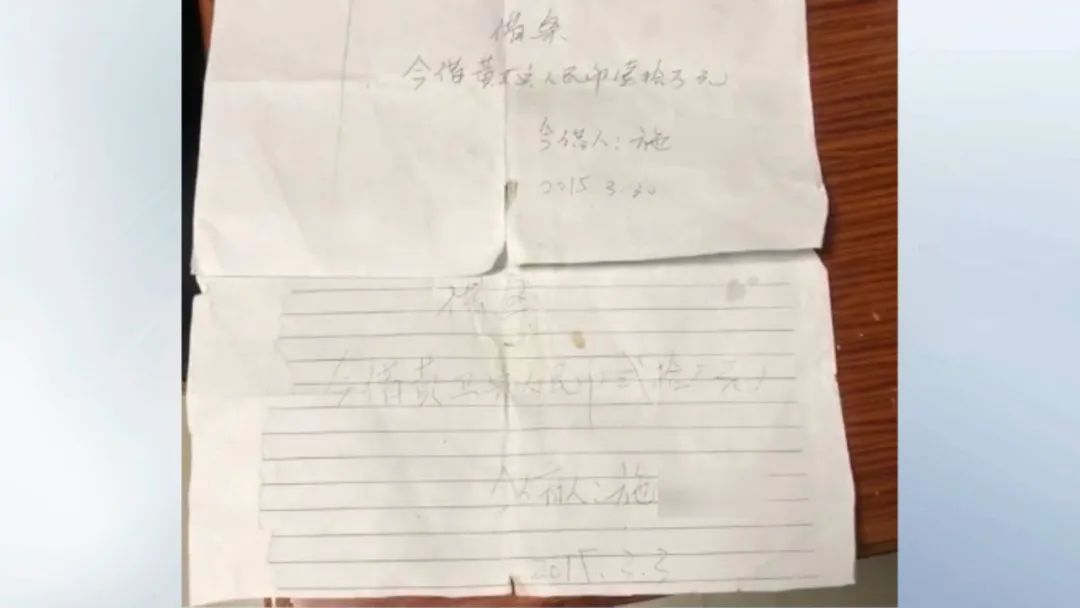 借条
今借黄卫兵人民币壹拾万元
今借人：施
2015.3.30
借条
今借黄卫兵人民币贰拾万元
今借人：施
2015.3.3